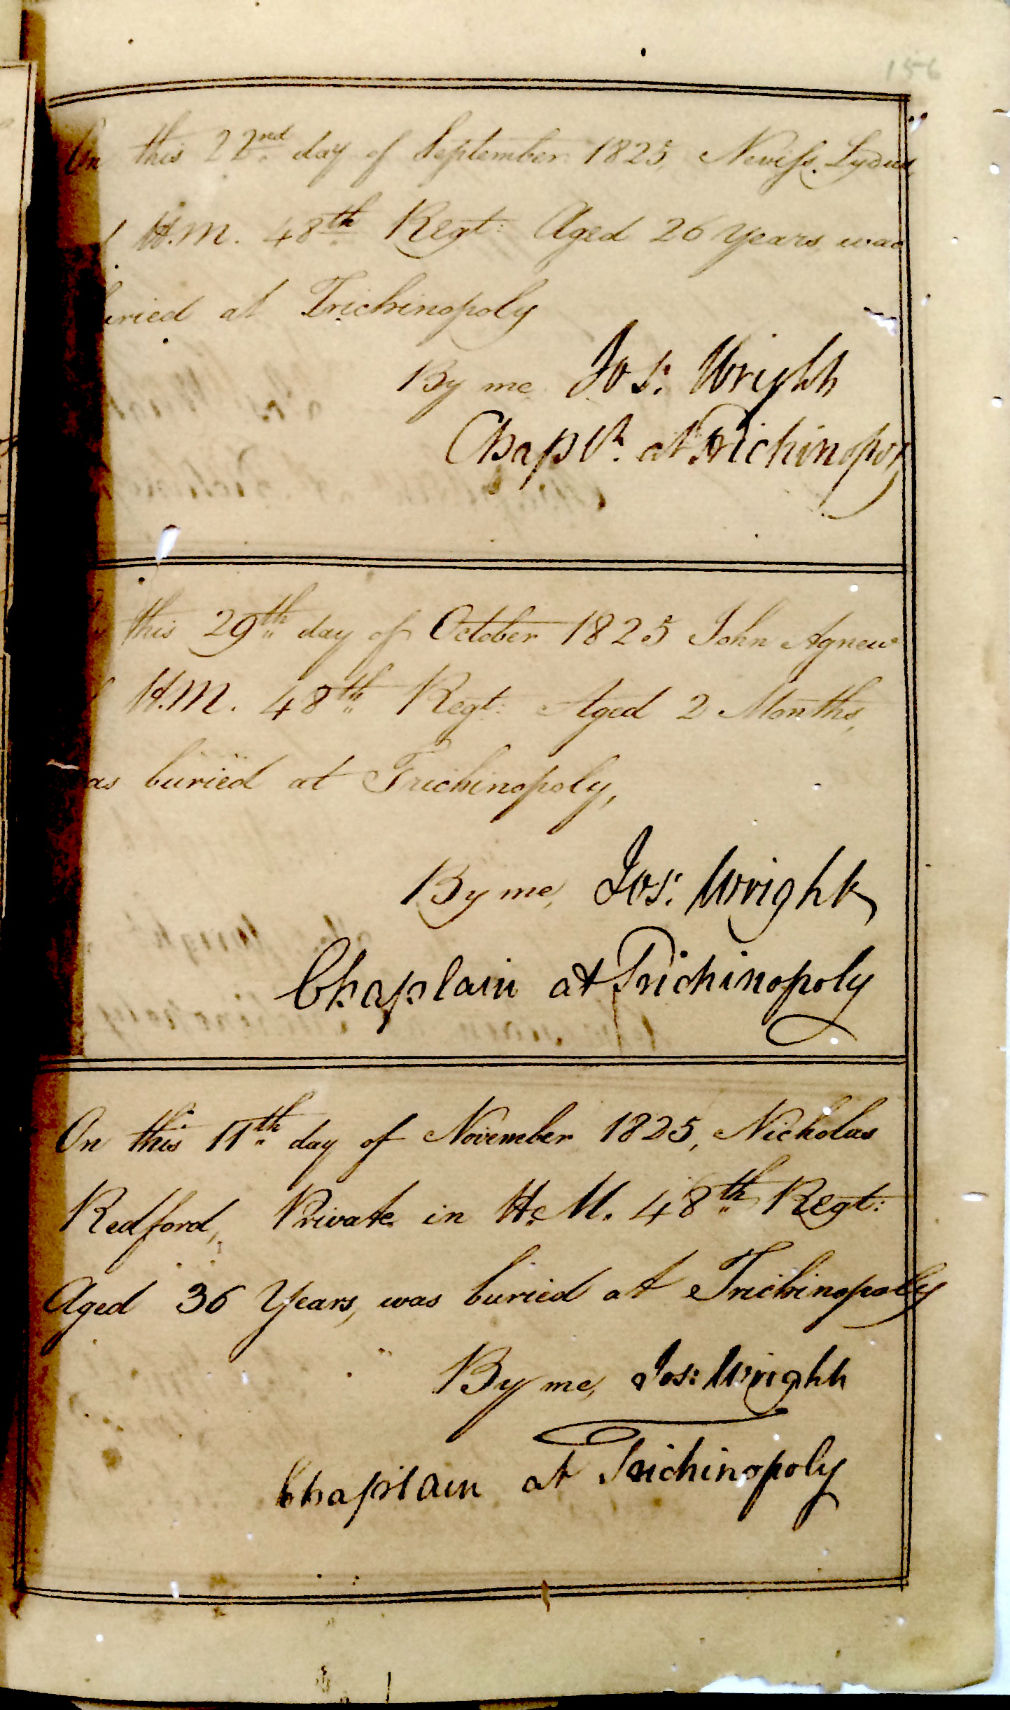 156
On this 22nd day of September 1825, Neviss. Lydud
H.M. 48th Regt: Aged 26 Years, was
uried at Trichinopoly
By me Jos: Wright
Chapln. at Trichinopoly
this 29th day of October 1825 John Agnew
H.M. 48th Regt: Aged 2 Months,
as buried at Trichinopoly,
By me, Jos: Wright
Chaplain at Trichinopoly
On this 11th day of November 1825, Nicholas
Redford, Private in H.M. 48th Regt:
Aged 36 Years, was buried at Trichinopoly
By me, Jos: Wright
Chaplain at Trichinopoly